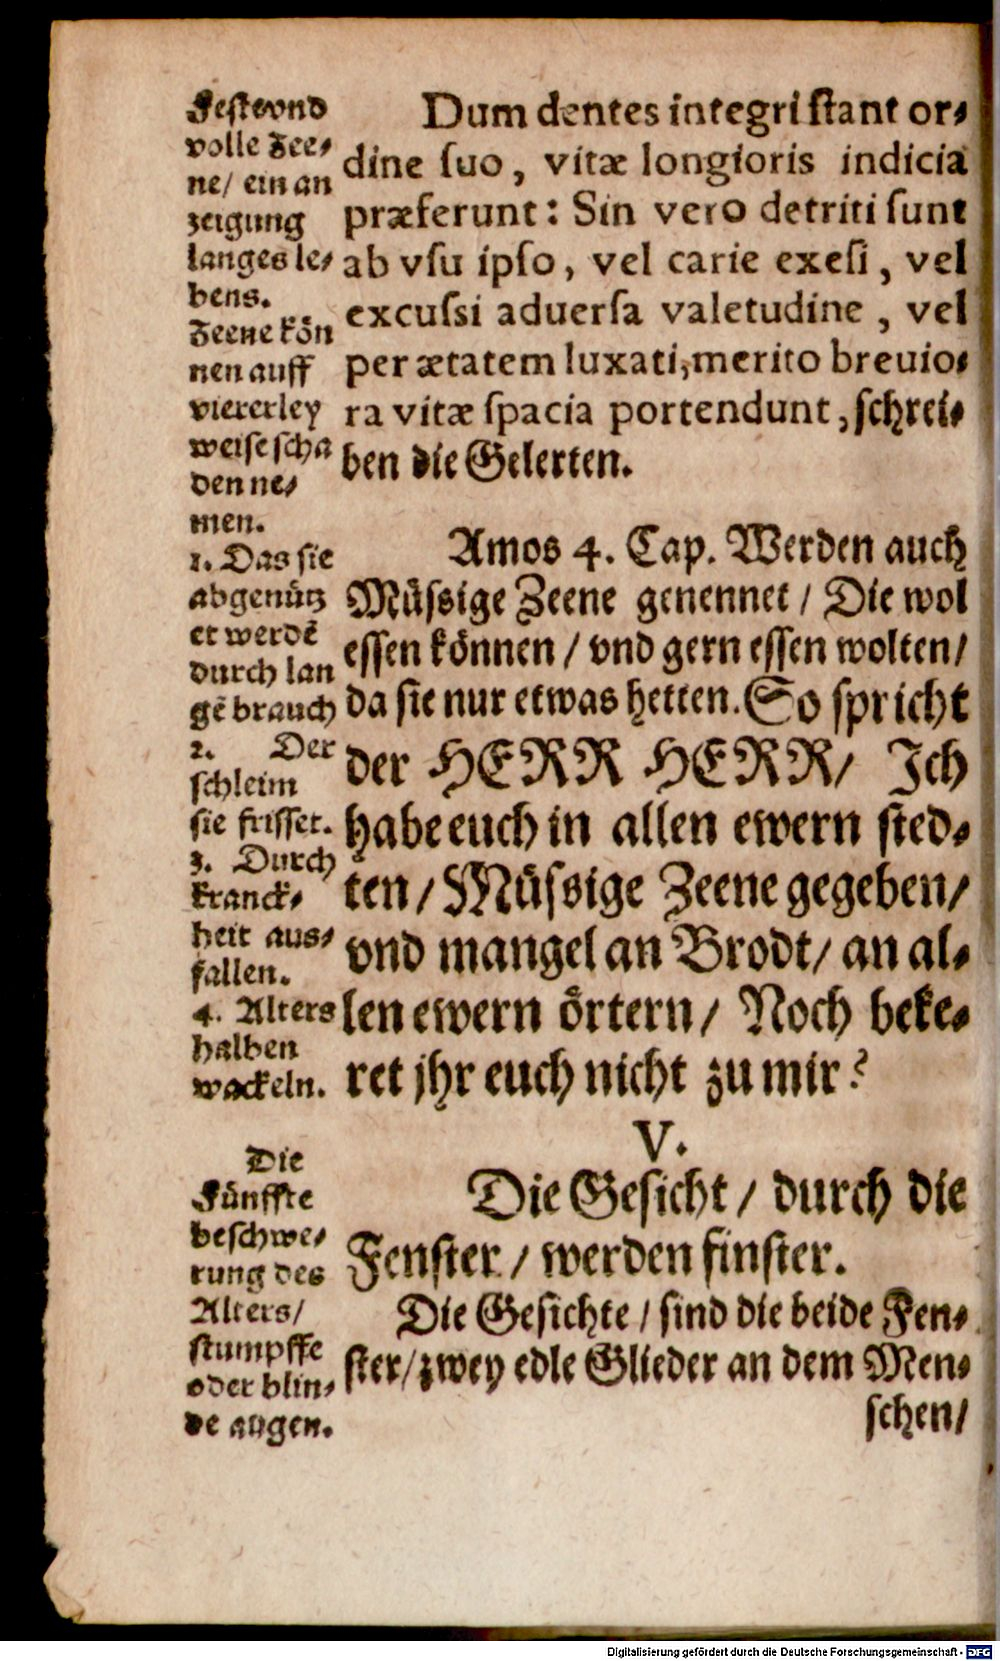 Feste vnd
volle Zee⸗
ne/ ein an
zeigung
langes le⸗
bens.
Zeene kön
nen auff
viererley
weise scha
den ne⸗
men.
1. Das sie
abgenütz
et werdẽ
durch lan
gẽ brauch
2. Der
schleim
sie frisset.
3. Durch
kranck⸗
heit aus⸗
fallen.
4. Alters
halben
wackeln.
Die
Fünffte
beschwe⸗
rung des
Alters/
stumpffe
oder blin⸗
de augen.
Dum dentes integri ſtant or⸗
dine ſuo, vitæ longioris indicia
præferunt: Sin vero detriti ſunt
ab vſu ipſo, vel carie exeſi, vel
excuſsi aduerſa valetudine, vel
per ætatem luxati, merito breuio⸗
ra vitæ ſpacia portendunt, schrei⸗
ben die Gelerten.
Amos 4. Cap. Werden auch
Müssige Zeene genennet/ Die wol
essen können/ vnd gern essen wolten/
da sie nur etwas hetten. So spricht
der HERR HERR/ Ich
habe euch in allen ewern sted⸗
ten/ Müssige Zeene gegeben/
vnd mangel an Brodt/ an al⸗
len ewern örtern/ Noch beke⸗
ret jhr euch nicht zu mir?
V.
Die Gesicht/ durch die
Fenster/ werden finster.
Die Gesichte/ sind die beide Fen⸗
ster/ zwey edle Glieder an dem Men⸗
schen/
Digitalisierung gefördert durch die Deutsche Forschungsgemeinschaft - DFG